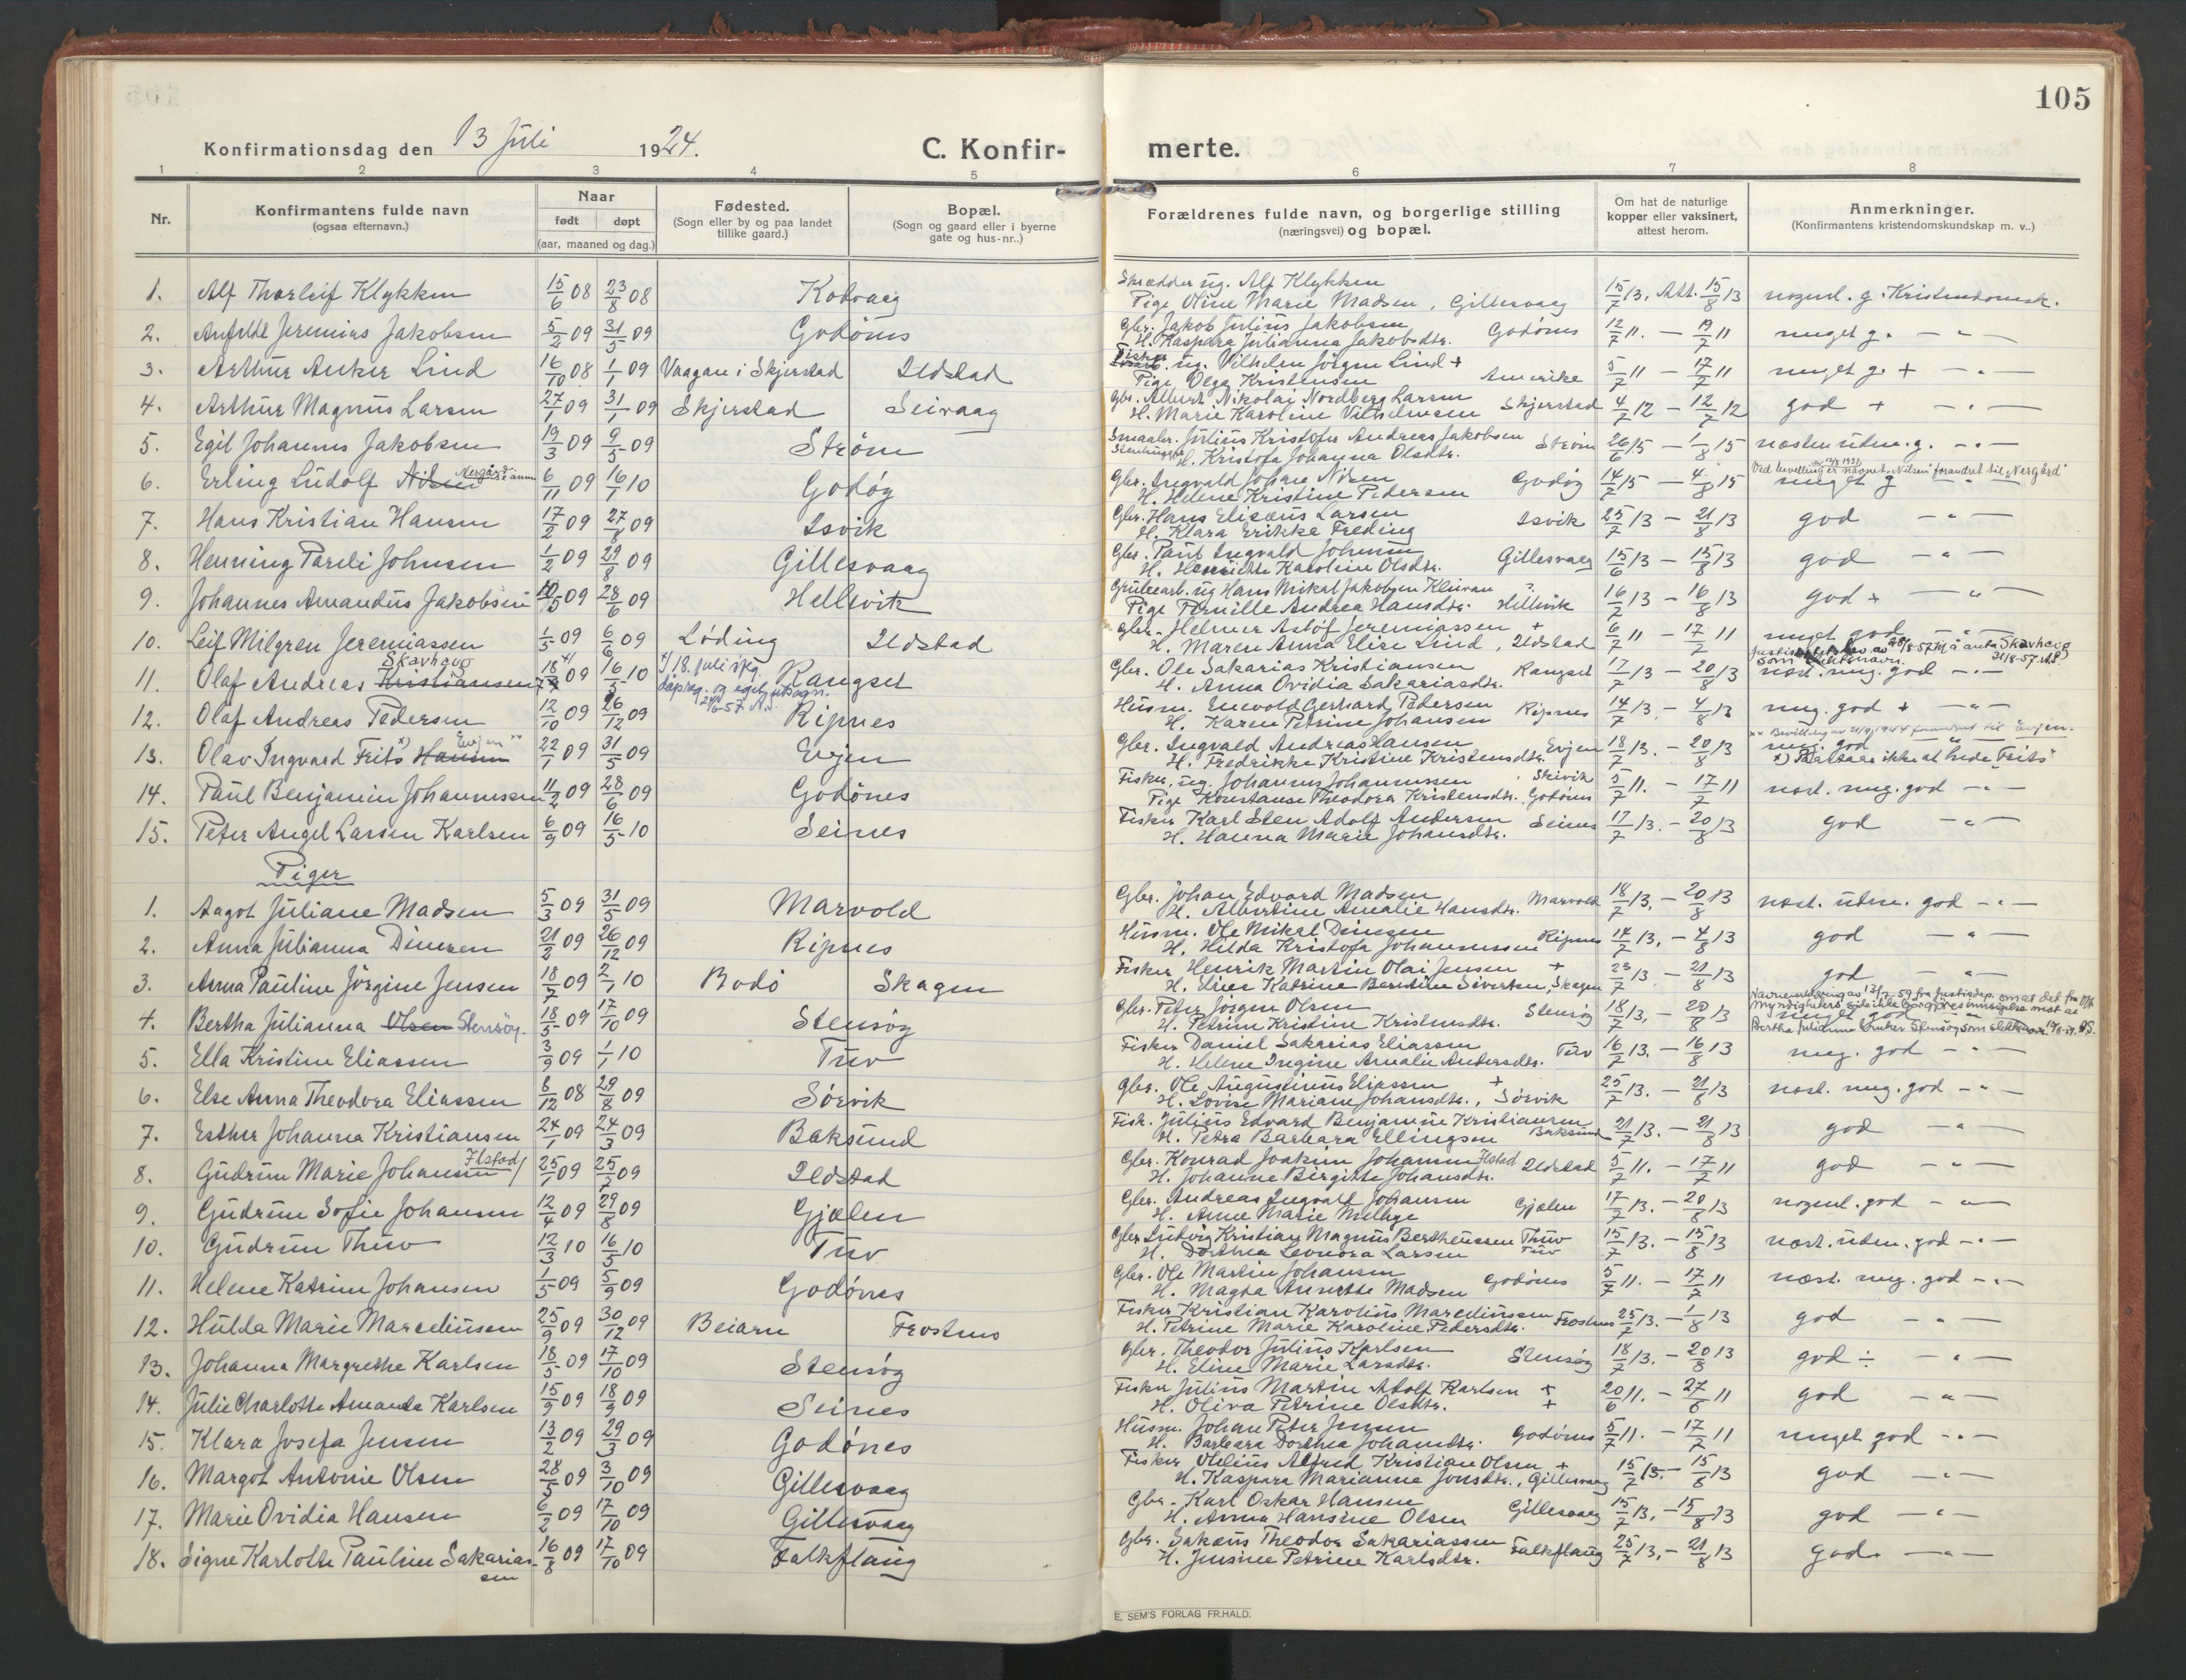 105
Konfirmationsdag den 13 Juli 1924.
C. Konfir- merte.
1 2 3 4 5 6 7 8
Nr.
Konfirmantens fulde navn
(ogsaa efternavn.)
Naar
født døpt
(aar, maaned og dag.)
Fødested.
(Sogn eller by og paa landet
tillike gaard.)
Bopæl.
(Sogn og gaard eller i byerne
gate og hus-nr..)
Forældrenes fulde navn, og borgerlige stilling
(næringsvei) og bopæl.
Om hat de naturlige
kopper eller vaksinert,
attest herom.
Anmerkninger.
(Konfirmantens kristendomskundskap m. v..)
1. Alf Thorleif Klykken 15/6 08 23/8 08 Kodvaag Skrædder ug. Alf Klykken
Pige Oline Marie Madsen, Gillesvaag 15/7 13. Att. 15/8 13 nogenl. g. Kristendomsk.
2. Anfeldt Jeremias Jakobsen 5/2 09 31/5 09 Godønes Gbr. Jakob Julius Jakobsen
H. Kaspara Julianna Jakobsdtr. Godønes 12/7 11. — 19/7 11 meget g. — " —
3. Arthur Anker Lind 16/10 08 1/1 09 Vaagan i Skjerstad Ildstad Fisker ug. Vilhelm Jörgen Lind +
Pige Olga Kristensen Amerika 5/7 11 — 17/7 11 meget g. + — " —
4. Arthur Magnus Larsen 27/1 09 31/1 09 Skjerstad Seivaag Gbr. Albert Nikolai Nordberg Larsen
H. Marie Karoline Vilhelmsen Skjerstad 4/7 12 — 12/7 12 god + — " —
5. Egil Johannes Jakobsen 19/3 09 9/5 09 Strøm Smaabr. Julius Kristofer Andreas Jakobsen
Stenhugger H. Kristofa Johanna Olsdtr. Strøm 26/6 15 — 1/8 15 næsten udm. g. — " —
6. Erling Ludolf Nilsen Nergård se anm 6/11 09 16/1 10 Godøy Gbr. Ingvald Johan Nilsen
H. Helene Kristine Pedersen Godøy 14/7 15 — 4/8 15 Ved bevilling er navnet "Nilsen" forandret til "Nergård"
meget g — " —
7. Hans Kristian Hansen 17/2 09 27/8 09 Isvik Gbr. Hans Elisæus Larsen
H. Klara Erikke Freding Isvik 25/7 13 — 21/8 13 god — " —
8. Henning Pareli Johnsen 1/2 09 29/8 09 Gillesvaag Gbr. Paul Ingvald Johnsen
H. Henriette Karoline Olsdtr. Gillesvaag 15/6 13 — 15/8 13 god — " —
9. Johannes Amandus Jakobsen 10/5 09 28/6 09 Hellevik Grubearb. ug Hans Mikal Jakobsen Kleivan ?
Pige Pernille Andrea Hansdtr. Hellvik 16/7 13 — 16/8 13 god + — " —
10. Leif Milgren Jeremiassen 1/5 09 6/6 09 Løding Ildstad Gbr. Helmer Astöf Jeremiassen +
H. Maren Anna Elise Lind, Ildstad 6/7 11 — 17/7 11 meget god — " —
11. Olaf Andreas Kristiansen Skavhaug 18/7 09 16/5 10 x) 18. juli iflg.
dåpsreg. og eget utsagn. Rangset Gbr. Ole Sakarias Kristiansen
H. Anna Ovidia Sakariasdtr. Rangset 17/7 13 — 20/8 13 som slektsnavn.
næst. meg. god — " —
12. Olaf Andreas Pedersen 12/10 09 26/12 09 Ripnes Husm. Enevold Gerhard Pedersen
H. Karen Petrine Johansen Ripnes 14/7 13. — 4/8 13 meg. god + — " —
13. Olav Ingvard Frits x) Hansen Evjen xx 22/1 09 31/5 09 Evjen Gbr. Ingvald Andreas Hansen
H. Fredrikke Kristine Kristensdtr. Evjen 18/7 13. — 20/8 13 xx Bevilling av 21/9 1944 forandret til Evjen.
meg. god — " —
x) Paastaar ikke at hede "Frits"
14. Paul Benjamin Johannessen 11/2 09 28/6 09 Godönes Fisker, ug. Johannes Johannessen, Skivik
Pige Konstanse Theodora Kristensdtr. Godønes 5/7 11. — 17/7 11 næst. meg. god — " —
15. Peter Angel Larsen Karlsen 6/9 09 16/5 10 Seines Fisker Karl Sten Adolf Andersen
H. Hanna Marie Johansdtr. Seines 17/7 13. — 20/8 13 god — " —
Piger
1. Aagot Juliane Madsen 5/3 09 31/5 09 Marvold Gbr. Johan Edvard Madsen
H. Albertine Amalie Hansdtr. Marvold 18/7 13. — 20/8 13 næst. udm. god — " —
2. Anna Julianna Dinesen 21/2 09 26/12 09 Ripnes Husm. Ole Mikal Dinesen
H. Hilda Kristofa Johannessen Ripnes 14/7 13. — 4/8 13 god — " —
3. Anna Pauline Jörgine Jensen 18/7 09 2/1 10 Bodö Skagen Fisker Henrik Martin Olai Jensen +
H. Elines Katrine Berntine Sivertsen, Skagen 23/7 13. — 21/8 13 god — " —
4. Bertha Julianna Olsen Stensöy. 18/5 09 17/10 09 Stensöy Gbr. Peter Jörgen Olsen
H. Petrine Kristine Kristensdtr. Stensöy 18/7 13, — 20/8 13 meget god — " —
Bertha Julianna bruker Stensöy som slektsnavn.
5. Ella Kristine Eliassen 3/9 09 1/1 10 Tuv Fisker Daniel Sakarias Eliassen
H. Helene Ingine Amalie Andersdtr. Tuv 16/7 13. — 16/8 13 meg. god — " —
6. Else Anna Theodora Eliassen 8/12 08 29/8 09 Sörvik Gbr. Ole Augustinus Eliassen +
H. Lovise Mariane Johansdtr., Sörvik 25/7 13. — 21/8 13 næst. meg. god — " —
7. Esther Johanna Kristiansen 24/1 09 24/3 09 Baksund Fisk. Julius Edvard Benjamin Kristiansen
H. Petra Barbara Ellingsen Baksund 21/7 13. — 21/8 13 god — " —
8. Gudrun Marie Johansen Ilstad/ 25/1 09 25/7 09 Ildstad Gbr. Konrad Joakim Johansen Ilstad
H. Johanne Birgitte Johansdtr. Ildstad 5/7 11. — 17/7 11 god — " —
9. Gudrun Sofie Johansen 12/4 09 29/8 09 Gjælen Gbr. Andreas Ingvald Johansen
H. Anne Marie Mælhye Gjælen 17/7 13. — 20/8 13 nogenl. god — " —
10. Gudrun Thuv 12/3 10 16/5 10 Tuv Gbr Ludvig Kristian Magnus Bertheussen Thuv
H. Dorthea Leonora Larsen Tuv 15/7 13. — 15/8 13 næst. udm. god — " —
11. Helene Katrine Johansen 1/5 09 5/9 09 Godönes Gbr. Ole Martin Johansen
H. Magda Annette Madsen Godönes 5/7 11. — 17/7 11 næst. meg. god — " —
12. Hulda Marie Marceliussen 25/9 09 30/12 09 Beiarn Frostmo Fisker Kristian Karolius Marceliussen
H. Petrine Marie Karoline Pedersdtr. Frostmo 25/7 13. — 1/8 13 god — " —
13. Johanna Margrethe Karlsen 18/5 09 17/10 09 Stensöy Gbr. Theodor Julius Karlsen
H. Eline Marie Larsdtr. Stensöy 18/7 13. — 20/8 13 god ÷ — " —
14. Julie Charlotte Amanda Karlsen 15/9 09 18/9 09 Seines Fisker Julius Martin Adolf Karlsen +
H. Oliva Petrine Olsdtr. + 20/6 11. — 27/6 11 god — " —
15. Klara Josefa Jensen 13/2 09 29/3 09 Godónes Husm. Johan Peter Jensen
H. Barbara Dorthea Johansdtr. Godönes 5/7 11. — 17/7 11 meget god — " —
16. Margot Antonie Olsen 28/5 09 3/10 09 Gillesvaag Fisker Otelius Alfred Kristian Olsen +
H. Kaspara Marianne Jonsdtr., Gillesvaag 15/7 13. — 15/8 13 god — " —
17. Marie Ovidia Hansen 6/2 09 17/10 09 Gillesvaag Gbr. Karl Oskar Hansen
H. Anna Hansine Olsen Gillesvaag 15/7 13. — 15/8 13 god — " —
18. Signe Karlotte Pauline Sakarias-
sen 16/8 09 17/10 09 Falkflaug Gbr. Sakæus Theodor Sakariassen
H. Jensine Petrine Karlsdtr. Falkflaug 25/7 13. — 21/8 13 god. — " —
E. SEM'S FORLAG FR.HALD.